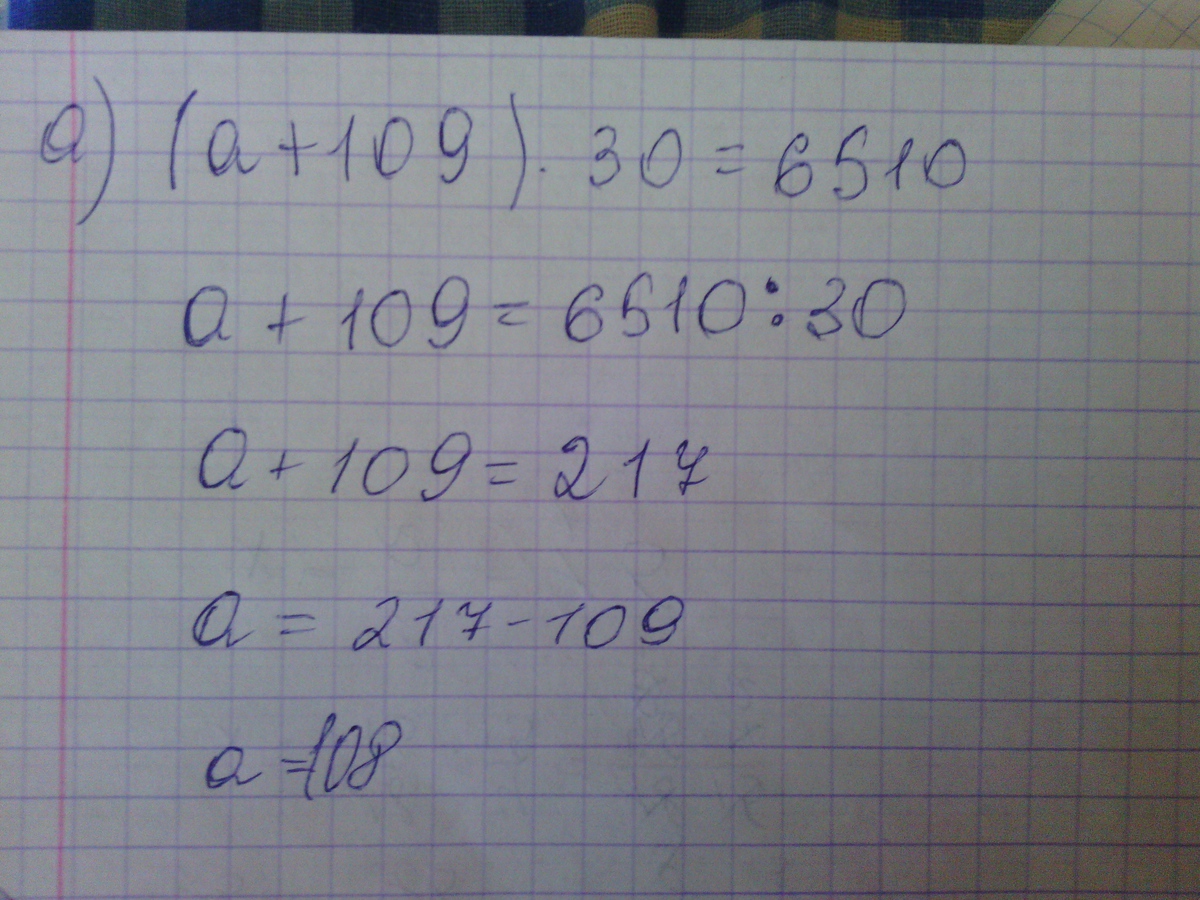 а) (а+109)·30=6510
а+109=6510:30
а+109=217
а=217-109
а=108